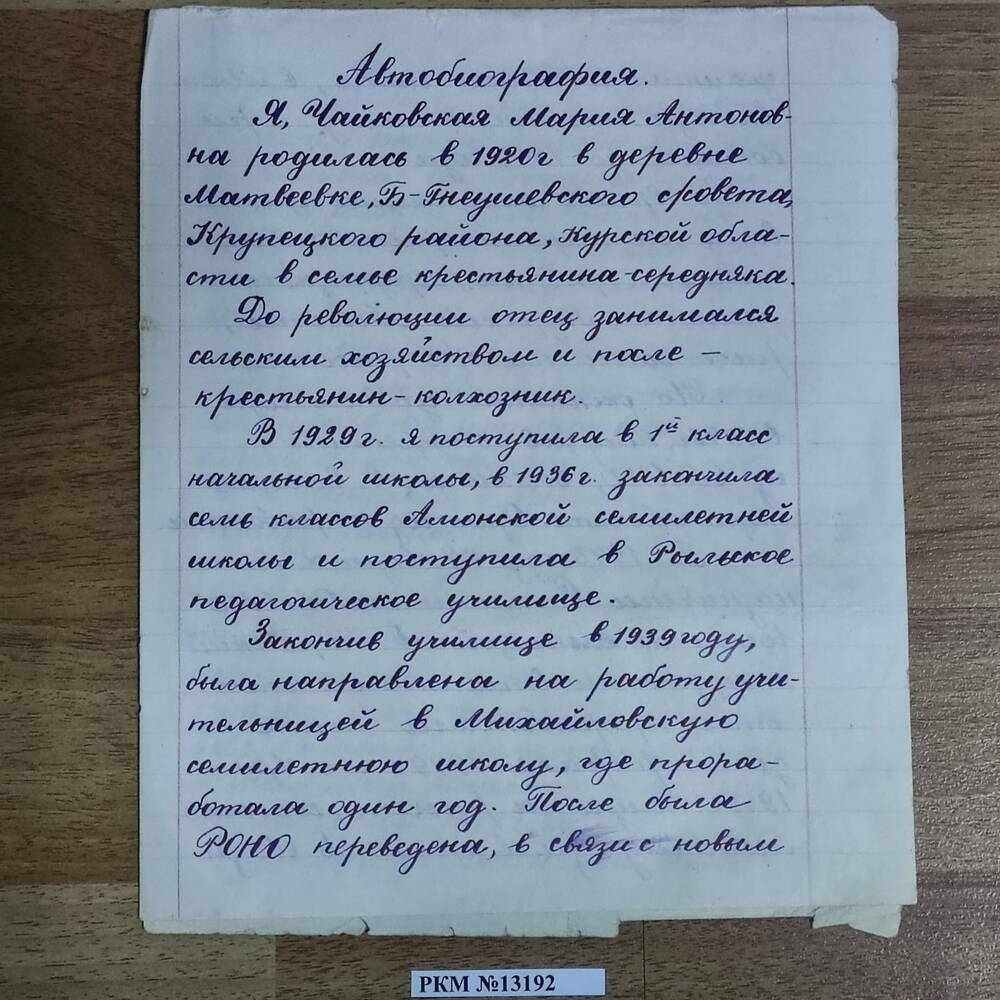 Автобиография.
Я, Чайковская Мария Антонов-
на родилась в 1920г в деревне
Матвеевке, Б-Гнеушевского с/совета,
Крупецкого района, Курской обла-
сти в семье крестьянина-середняка.
До революции отец занимался
сельским хозяйством и после –
крестьянин-колхозник.
В 1929г. я поступила в 1й класс
начальной школы, в 1936г. закончила
семь классов Амонской семилетней
школы и поступила в Рыльское
педагогическое училище.
Закончив училище в 1939году,
была направлена на работу учи-
тельницей в Михайловскую
семилетнюю школу, где прора-
ботала один год. После была
РОНО переведена, в связи с новым
РКМ №13192